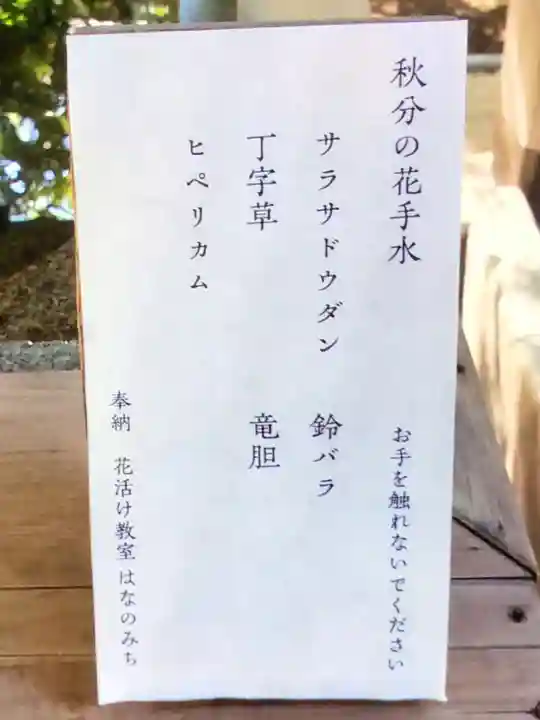 秋分の花手水　お手を触れないでください
サラサドウダン　鈴バラ
丁字草　竜胆
ヒペリカム
奉納　花活け教室 はなのみち